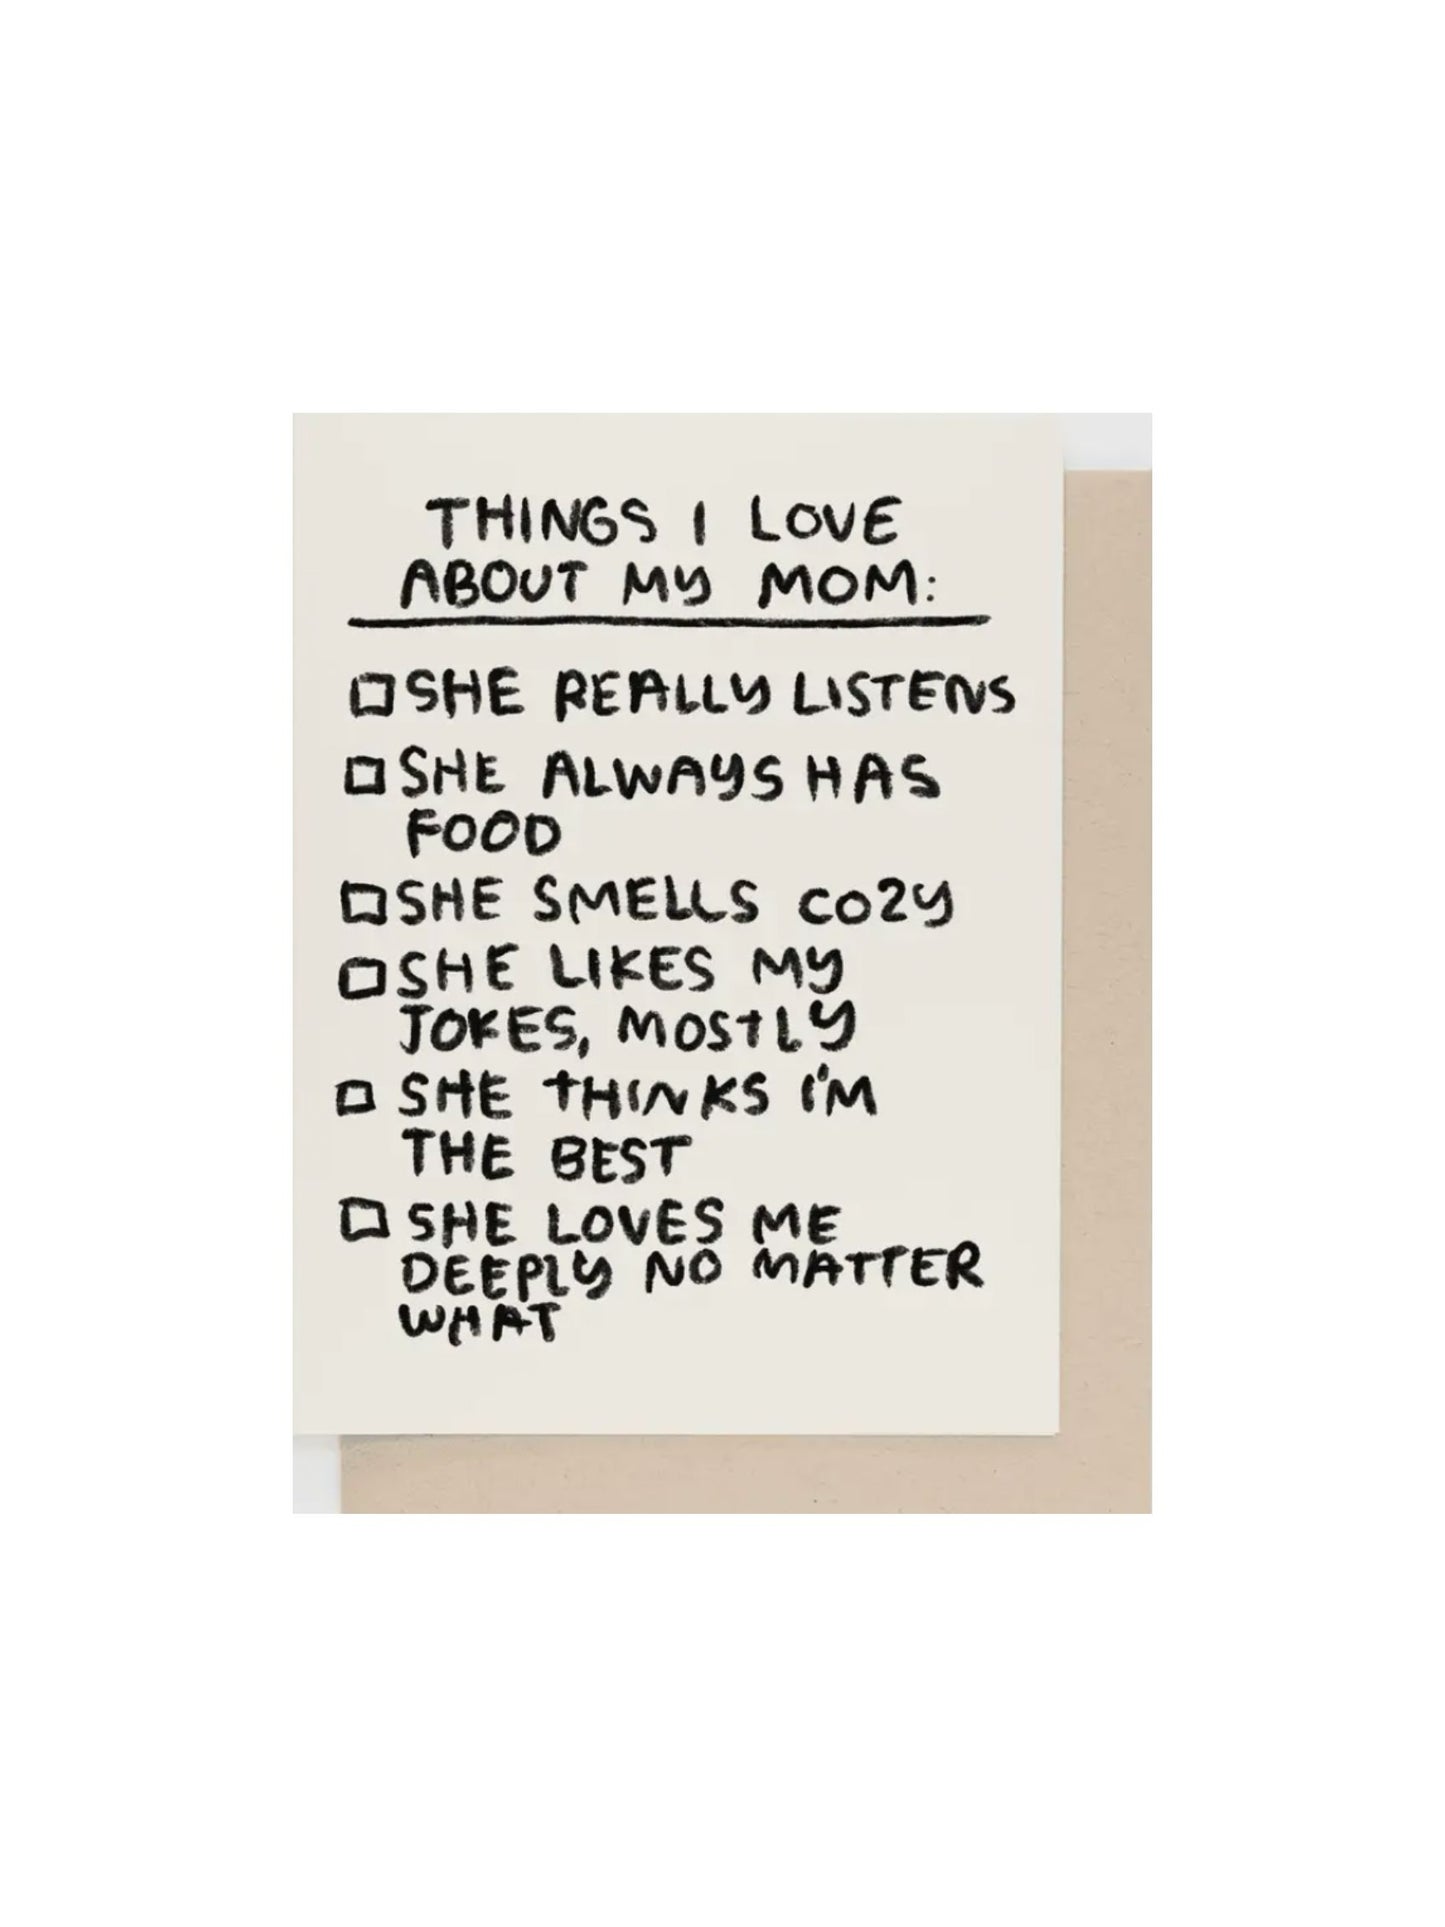 THINGS I LOVE
ABOUT MY MOM:
SHE REALLY LISTENS
SHE ALWAYS HAS
FOOD
SHE SMELLS COZY
SHE LIKES MY
JOKES, MOSTLY
SHE THINKS I'M
THE BEST
SHE LOVES ME
DEEPLY NO MATTER
WHAT